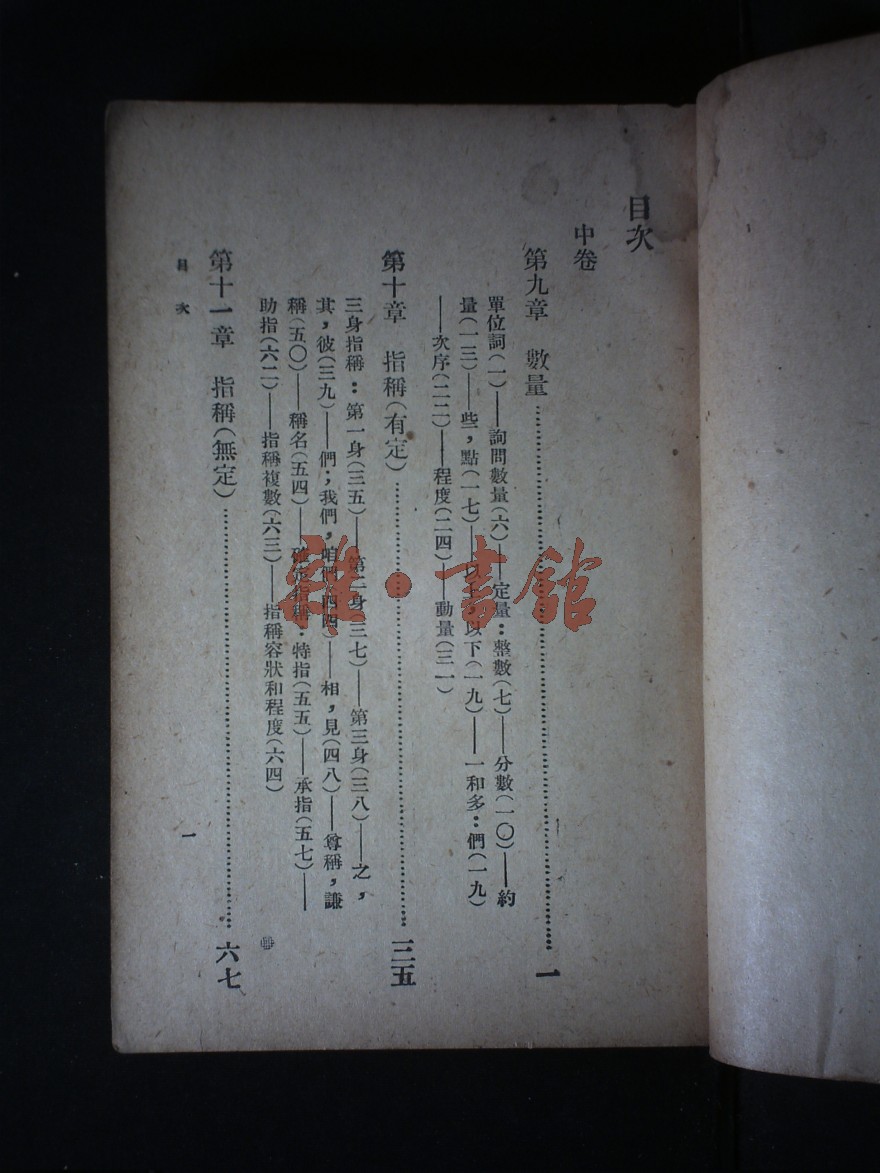 目次
中卷
第九章 數量……………一
單位詞(一)——詢問數量(六)——定量：整數(七)——分數(一〇)——約
量(一三)——些，點(一七)——以上，以下(一九)——一和多：們(一九)
——次序(二二)——程度(二四)——動量(三一)
第十章 指稱(有定)……………三五
三身指稱：第一身(三五)——第二身(三七)——第三身(三八)——之，
其，彼(三九)——們；我們，咱們(四四)——相，見(四八)——尊稱，謙
稱(五〇)——稱名(五四)——確定指稱：特指(五五)——承指(五七)——
助指(六二)——指稱複數(六三)——指稱容狀和程度(六四)
第十一章 指稱(無定)……………六七
目次
一
雜·書館